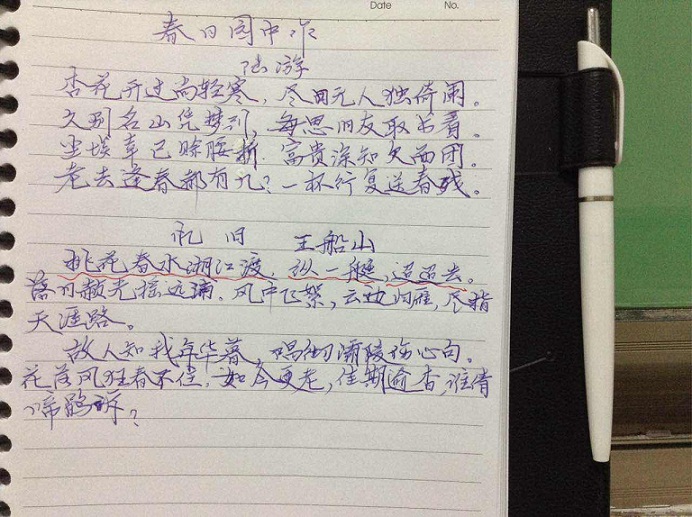 Date No.
春日园中作
陆游
杏花开过尚轻寒，尽日无人独倚阑。
久别名山凭梦到，每思旧友取书看。
尘埃幸已赊腰折，富贵深知欠面团。
老去逢春都有几？一杯行复送春残。
忆旧 王船山
桃花春水湘江渡，纵一艇，迢迢去。
落日赪光摇远浦，风中飞絮，云边归雁，尽指
天涯路。
故人知我年华暮，唱彻灞陵伤心句。
花落风狂春不住，如今更老，佳期逾杳，谁倩
啼鹃诉？